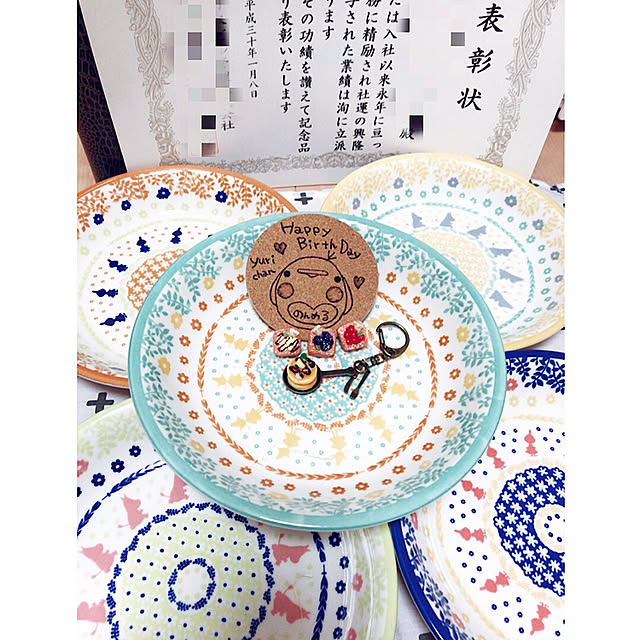 表彰状
殿
たは入社以来永年に亘っ
務に精励され社運の興隆
与された業績は洵に立派
ります
その功績を讃えて記念品
り表彰いたします
平成三十年一月八日
社
Happy
Birth Day
yuri
chan
のんめる